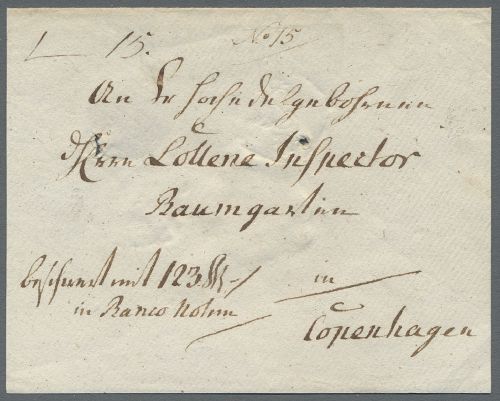 15. No 15
An Sr Hochedelgebohrnen
Herrn Lottene Inspector
Baumgarten
beschwert mit 123
in
in Banco Nohten
Copenhagen